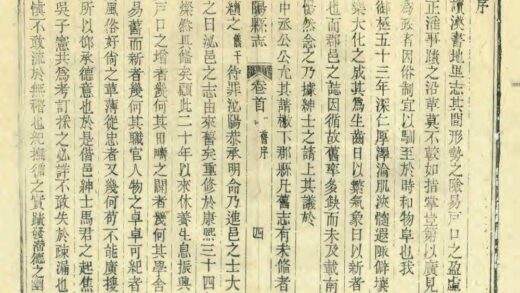 序
讀漢書地里志其間形勢之險易戶口之盈虛
正淮事蹟之沿革莫不較如指掌豈第以廣見
爲政者因俗制宜以馴至於時和物阜也我
御極五十三年深仁厚澤淪肌浹髓遐陬僻壤
樂大化之成其爲生齒日以繁氣象日以新者
也而郡邑之誌因循故舊率多缺而未及載南
慨然念之乃據紳士之請上其議於
中丞公公允其請檄下郡縣凡舊志有未脩者
陽縣志 卷首 舊序 四
續之 待罪泌陽恭承明命乃進邑之士大
之曰泌邑之志由來舊矣重修於康熙三十四
燦然具備矣顧此二十年以來休養生息振興
戶口之增者幾何其田疇之闢者幾何其學舍
易舊而新者幾何其職官人物之卓卓可紀者
風俗好尚之草薄從忠者又幾何苟不能廣搜
所以仰承德意也於是偕邑紳士馬君之起焦
吳子憲共爲考訂採之必詳不敢失於疎漏也
愼不敢流於無稽也紀撫循之實蹟發潛德之幽